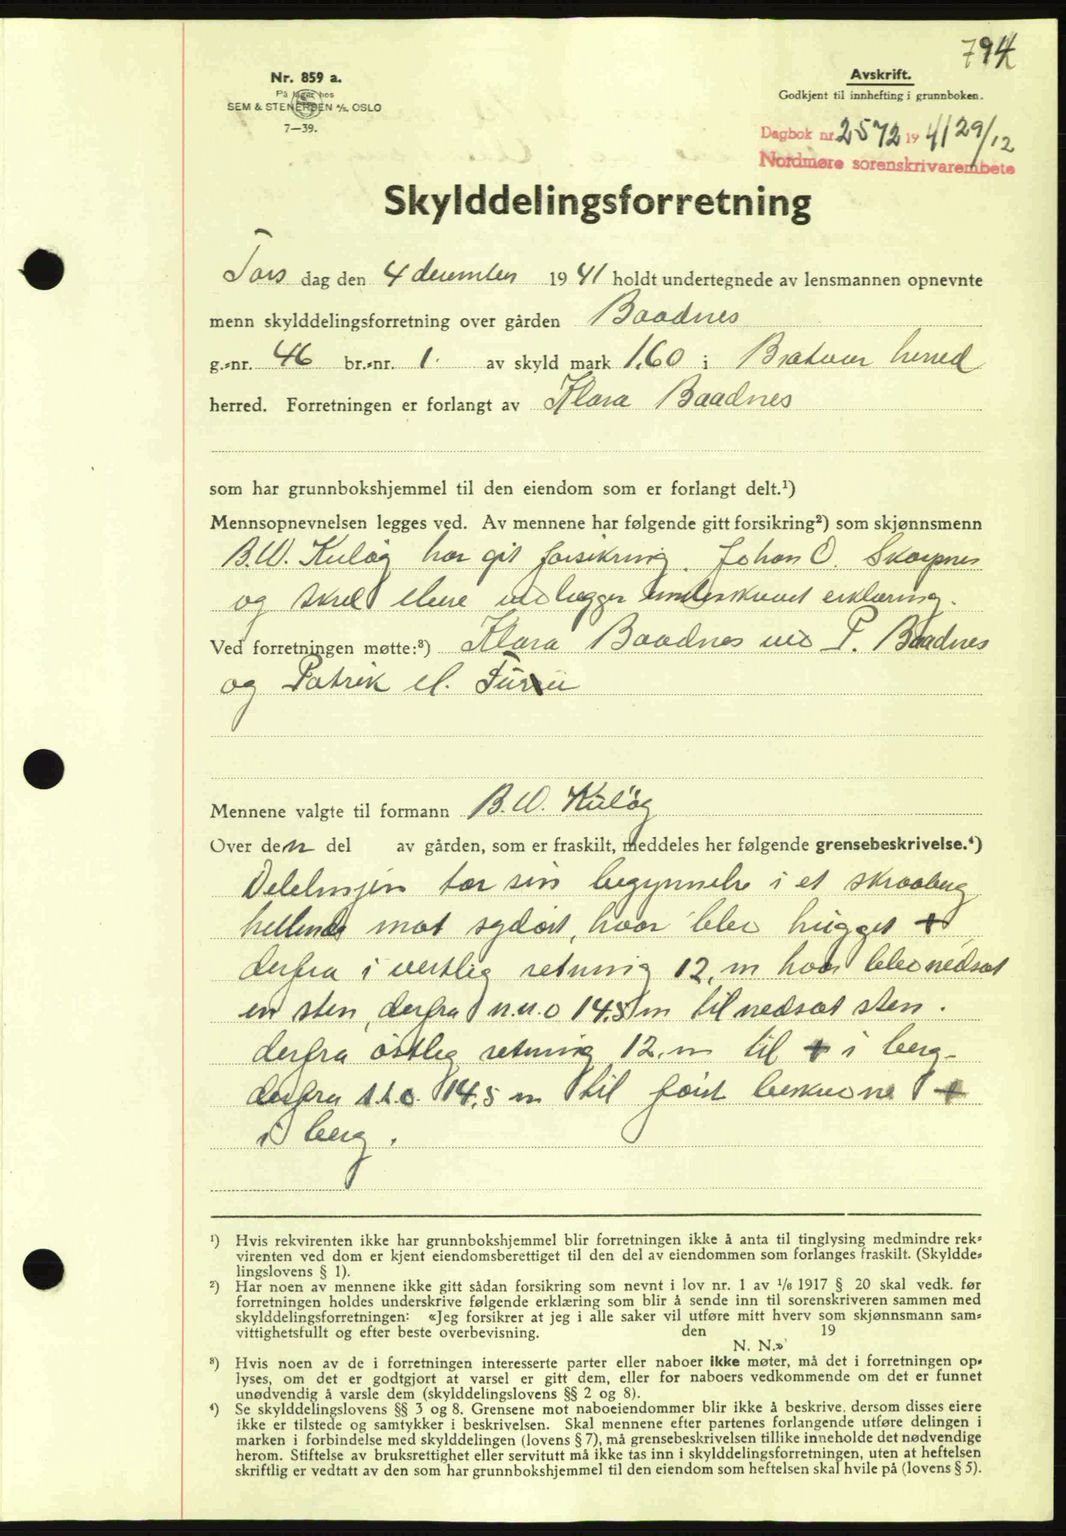 794
Nr. 859 a.
På lager hos
SEM & STENERSEN A/S, OSLO
7—39.
Avskrift.
Godkjent til innhefting i grunnboken.
Dagbok nr. 2572 1941 29/12
Nordmøre sorenskrivarembete
Skylddelingsforretning
Tors dag den 4 december 1941 holdt undertegnede av lensmannen opnevnte
menn skylddelingsforretning over gården Baadnes
g.-nr. 46 br.-nr. 1. av skyld mark 1.60 i Bratvær herred
herred. Forretningen er forlangt av Klara Baadnes
som har grunnbokshjemmel til den eiendom som er forlangt delt.¹)
Mennsopnevnelsen legges ved. Av mennene har følgende gitt forsikring²) som skjønnsmenn
B.W. Kuløy har git forsikring. Johan O. Skarpnes
og vedlegger underskrevet erklæring.
Ved forretningen møtte:³) Klara Baadnes ved P. Baadnes
og Patrik M.
Mennene valgte til formann B.W. Kuløy
Over den del av gården, som er fraskilt, meddeles her følgende grensebeskrivelse.⁴)
Delelinjen tar sin begynnelse i et skraaberg
hellende mot sydøst, hvor blev hugget +
derfra i vestlig retning 12, m hvor blev nedsat
en sten, derfra n.n.o 14.5 m til nedsat sten.
derfra østlig retning 12. m til + i berg-
derfra s.s.o. 14,5 m til først beskrevne +
i berg.
¹) Hvis rekvirenten ikke har grunnbokshjemmel blir forretningen ikke å anta til tinglysing medmindre rek-
virenten ved dom er kjent eiendomsberettiget til den del av eiendommen som forlanges fraskilt. (Skyldde-
lingslovens § 1).
²) Har noen av mennene ikke gitt sådan forsikring som nevnt i lov nr. 1 av 1/6 1917 § 20 skal vedk. før
forretningen holdes underskrive følgende erklæring som blir å sende inn til sorenskriveren sammen med
skylddelingsforretningen: «Jeg forsikrer at jeg i alle saker vil utføre mitt hverv som skjønnsmann sam-
vittighetsfullt og efter beste overbevisning. den 19
N. N.»
³) Hvis noen av de i forretningen interesserte parter eller naboer ikke møter, må det i forretningen op-
lyses, om det er godtgjort at varsel er gitt dem, eller for naboers vedkommende om det er funnet
unødvendig å varsle dem (skylddelingslovens §§ 2 og 8).
⁴) Se skylddelingslovens §§ 3 og 8. Grensene mot naboeiendommer blir ikke å beskrive, dersom disses eiere
ikke er tilstede og samtykker i beskrivelsen. Skal mennene efter partenes forlangende utføre delingen i
marken i forbindelse med skylddelingen (lovens § 7), må grensebeskrivelsen tillike inneholde det nødvendige
herom. Stiftelse av bruksrettighet eller servitutt må ikke tas inn i skylddelingsforretningen, uten at heftelsen
skriftlig er vedtatt av den som har grunnbokshjemmel til den eiendom som heftelsen skal hvile på (lovens § 5).